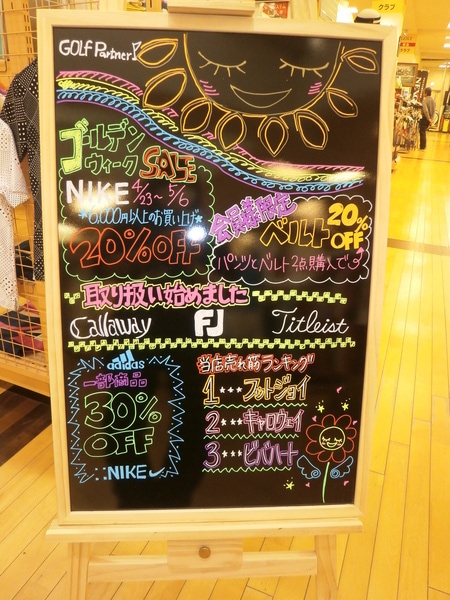 GOLF Partner!
ゴールデン
ウィーク SALE
NIKE 4/23~5/6
10,000円以上のお買い上げで
20%OFF
会員様限定
ベルト 20%
OFF
パンツとベルト2点購入で
取り扱い始めました
Callaway FJ Titleist
adidas
一部商品
30%
OFF
NIKE
当店売れ筋ランキング
1・・・フットジョイ
2・・・キャロウェイ
3・・・ビバハート
クラブ